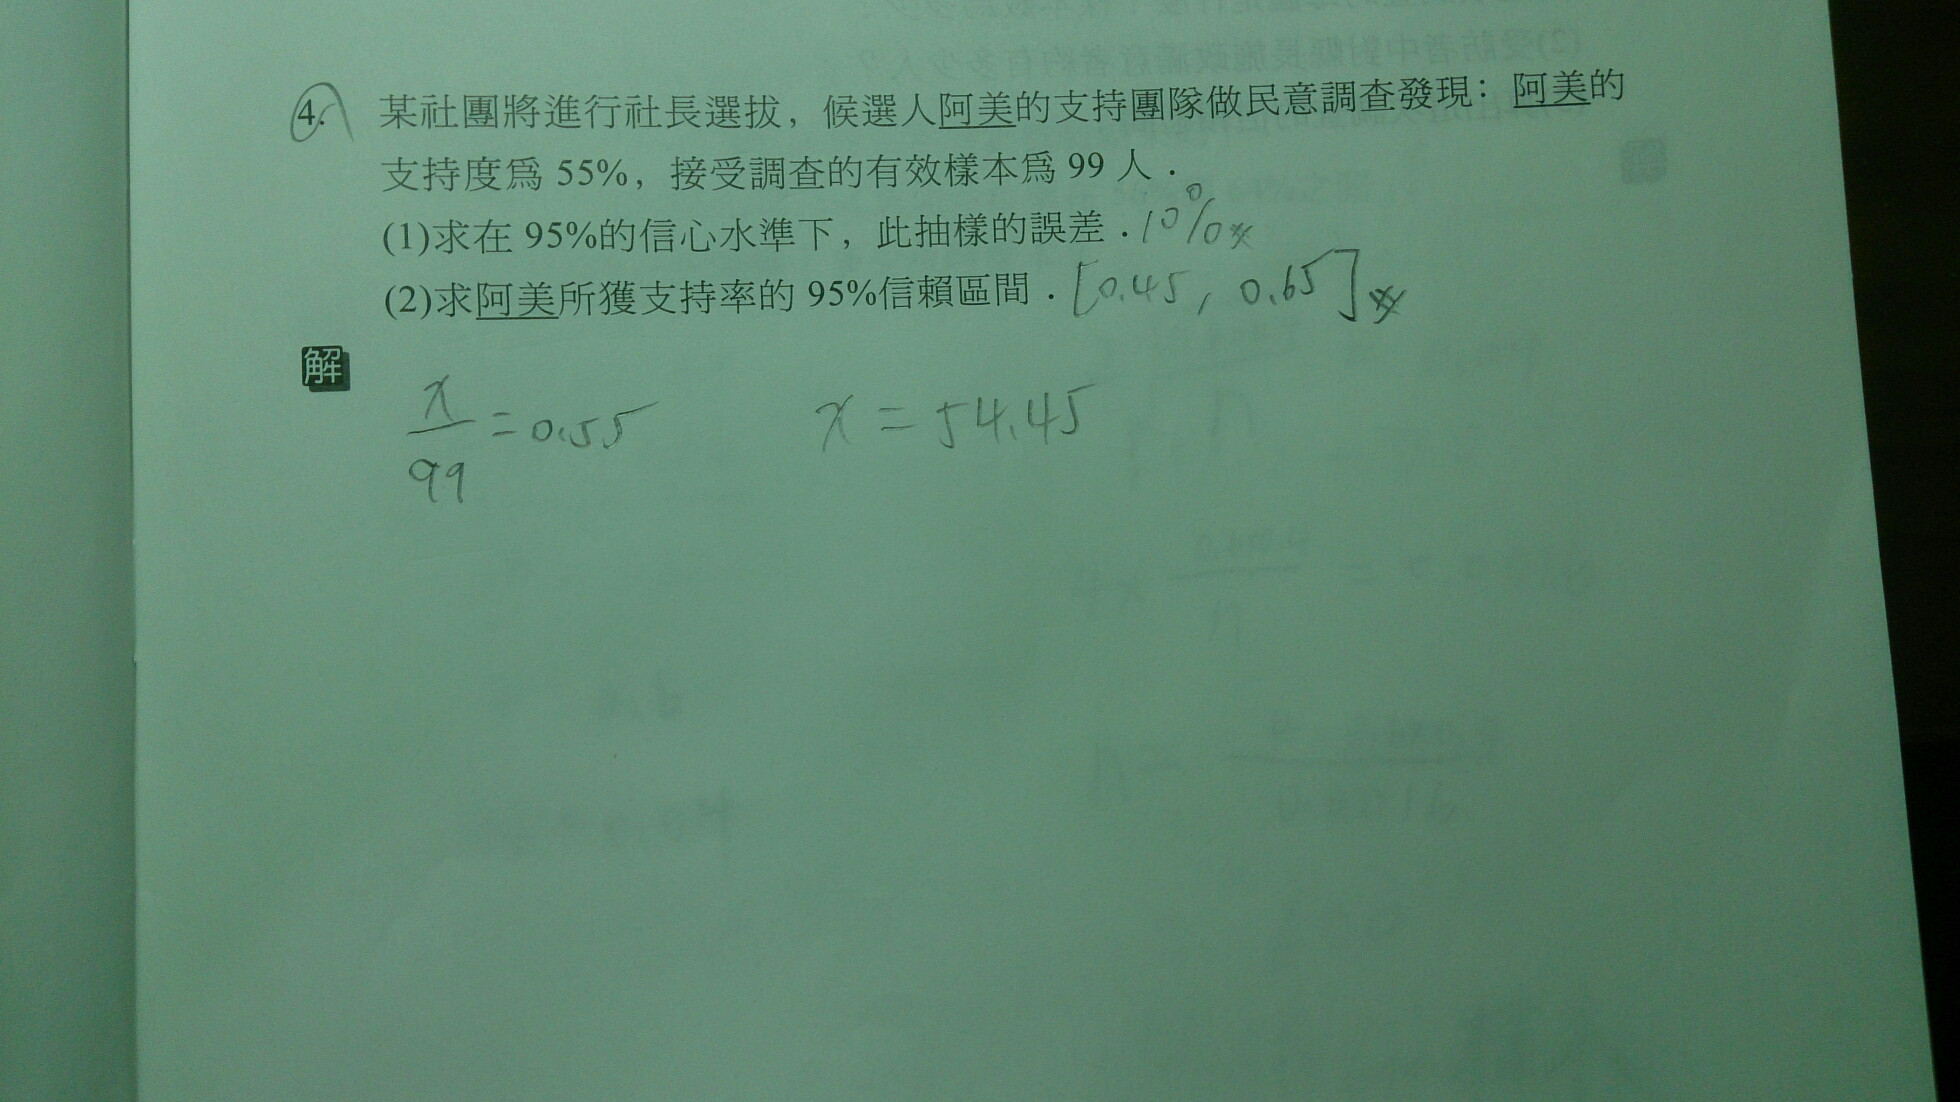 4. 某社團將進行社長選拔，候選人阿美的支持團隊做民意調查發現：阿美的
支持度為 55%，接受調查的有效樣本為 99 人．
(1)求在 95%的信心水準下，此抽樣的誤差．10%
(2)求阿美所獲支持率的 95%信賴區間．[0.45, 0.65]
解
x/99 = 0.55 x = 54.45